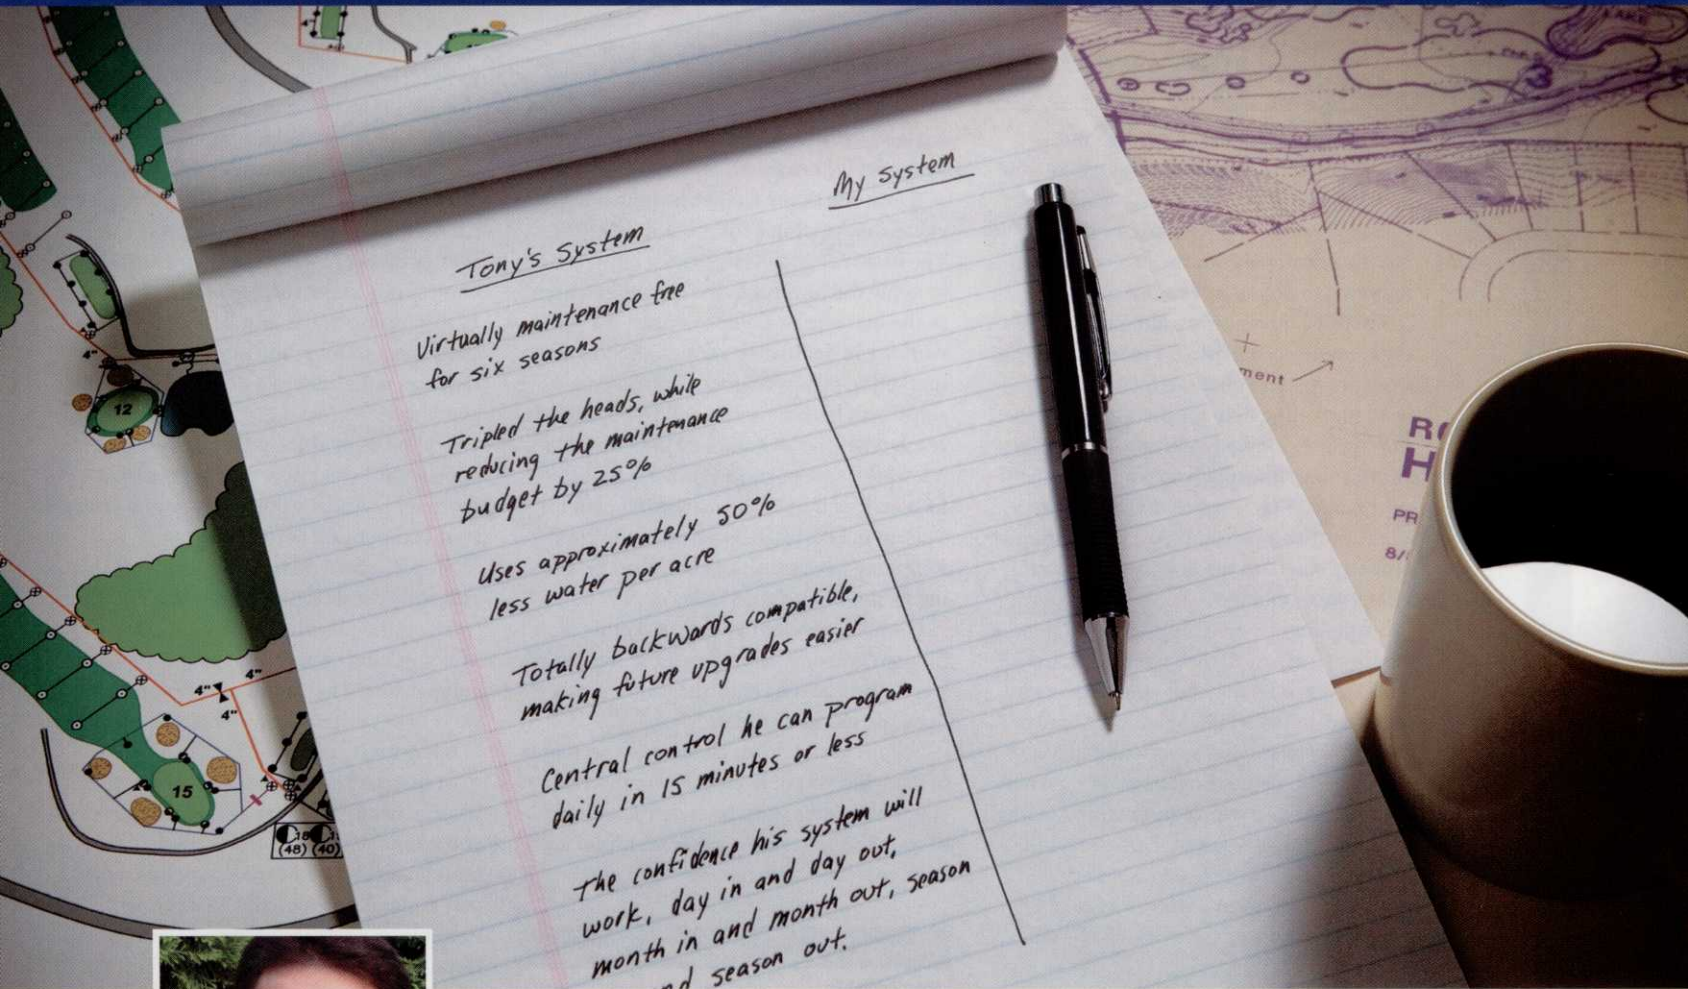 My System
Tony's System
Virtually maintenance free
for six seasons
Tripled the heads, while
reducing the maintenance
budget by 25%
Uses approximately 50%
less water per acre
Totally backwards compatible,
making future upgrades easier
Central control he can program
daily in 15 minutes or less
The confidence his system will
work, day in and day out,
month in and month out, season
season out.
12
4"
4"
4"
4"
15
(48) (40)
3
8/